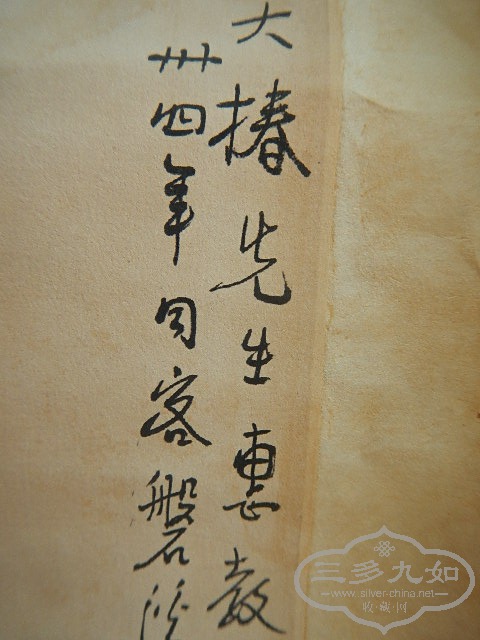 大椿先生惠教
卅四年同客磐
三多九如
www.silver-china.net
收藏网